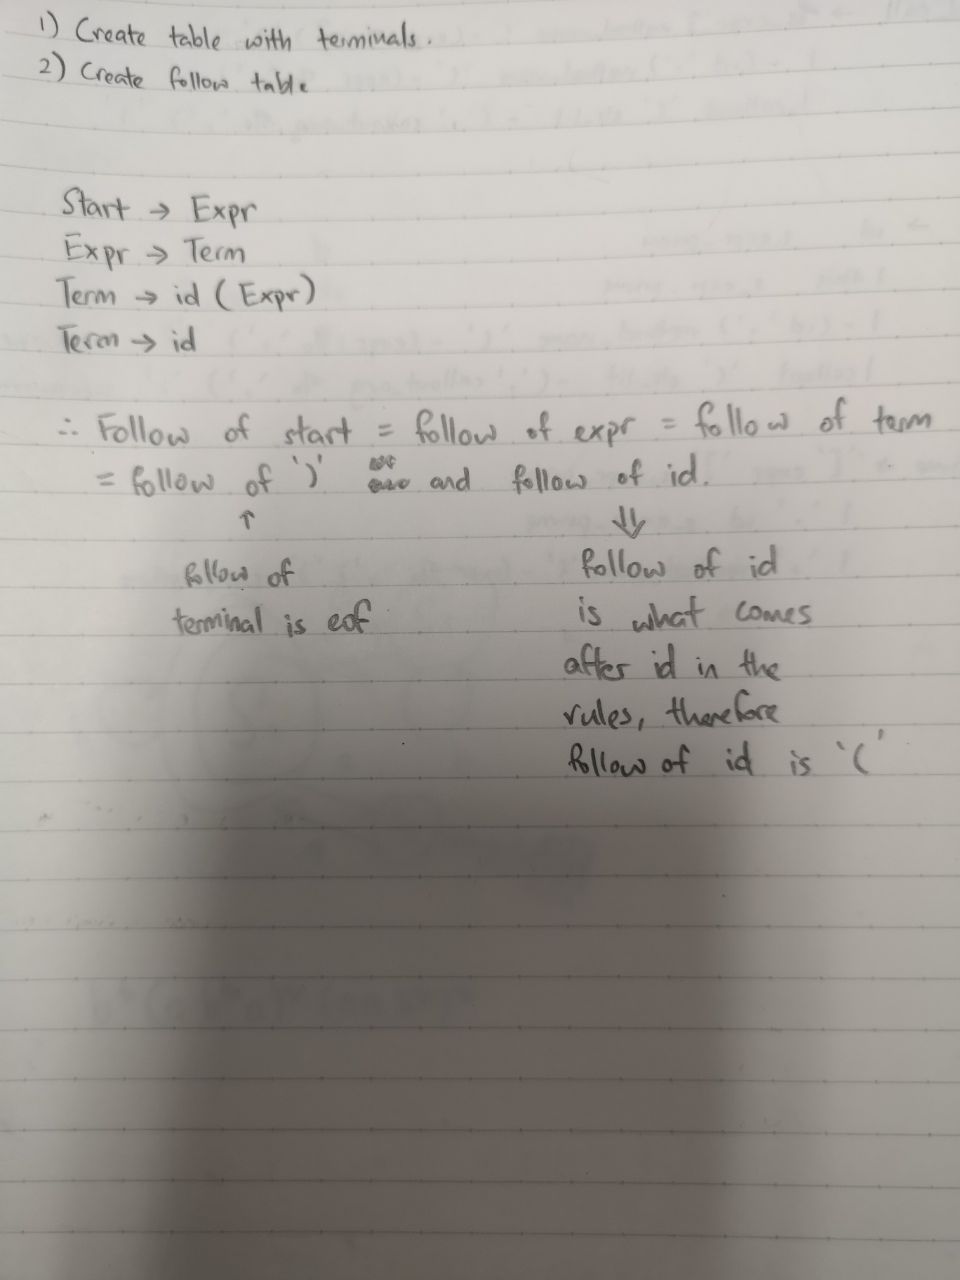 1) Create table with terminals.
2) Create follow table
Start → Expr
Expr → Term
Term → id (Expr)
Term → id
∴ Follow of start = follow of expr = follow of term
= follow of ')' and follow of id.
↑ ⇓
follow of
terminal is eof
follow of id
is what comes
after id in the
rules, therefore
follow of id is '('